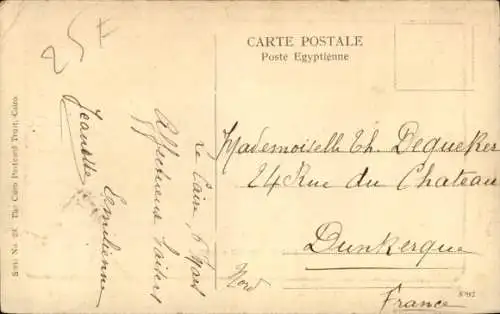 CARTE POSTALE
Poste Egyptienne
Le Caire, 6
Affectueux baisers
Jeanette Emilienne
Mademoiselle Th. Dequeker
24 Rue du Chateau
Dunkerque
Nord
France
Serie No. 23. The Cairo Postcard Trust, Cairo.